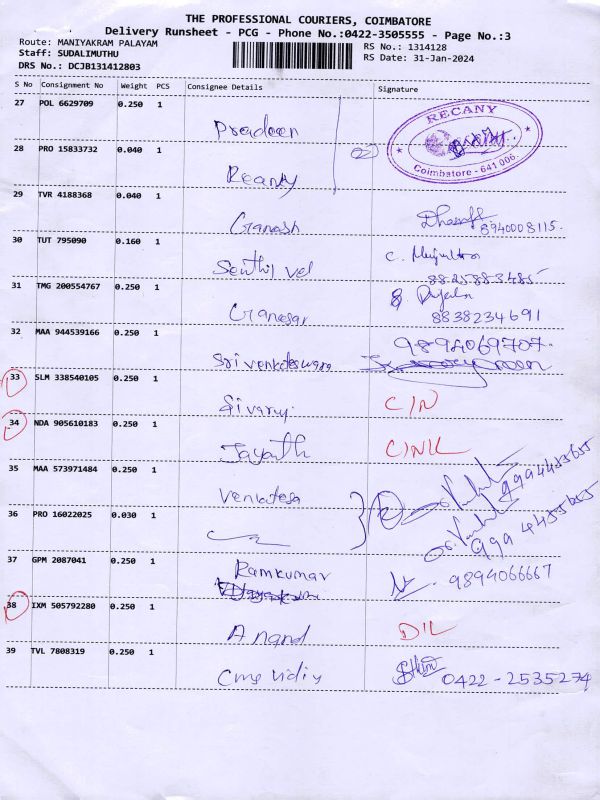 THE PROFESSIONAL COURIERS, COIMBATORE
Delivery Runsheet - PCG - Phone No.:0422-3505555 - Page No.:3
Route: MANIYAKRAM PALAYAM
RS No.: 1314128
Staff: SUDALIMUTHU
RS Date: 31-Jan-2024
DRS No.: DCJB131412803
S No Consignment No Weight PCS Consignee Details Signature
27 POL 6629709 0.250 1
Pradeen
RECANY
Coimbatore - 641 006.
28 PRO 15833732 0.040 1
02
Reany
29 TVR 4188368 0.040 1
Ganash
8940008115.
30 TUT 795090 0.160 1
Senthil vel
8825883485
31 TMG 200554767 0.250 1
Ganesar
8838234691
32 MAA 944539166 0.250 1
9894069707.
Sri venkateswara
33 SLM 338540105 0.250 1
C/N
34 NDA 905610183 0.250 1
Jayanth
35 MAA 573971484 0.250 1
Venkatesa
9994455655
36 PRO 16022025 0.030 1
9994455655
37 GPM 2087041 0.250 1
Ramkumar
9894066667
38 IXM 505792280 0.250 1
Anand
D/L
39 TVL 7808319 0.250 1
0422-2535274